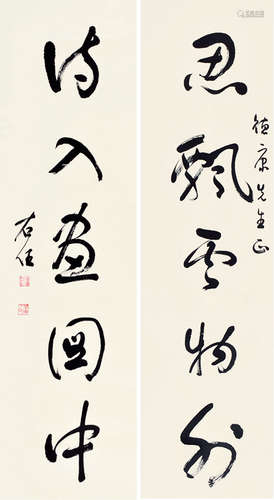 思飄雲物外
德康先生正
詩入畫圖中
右任